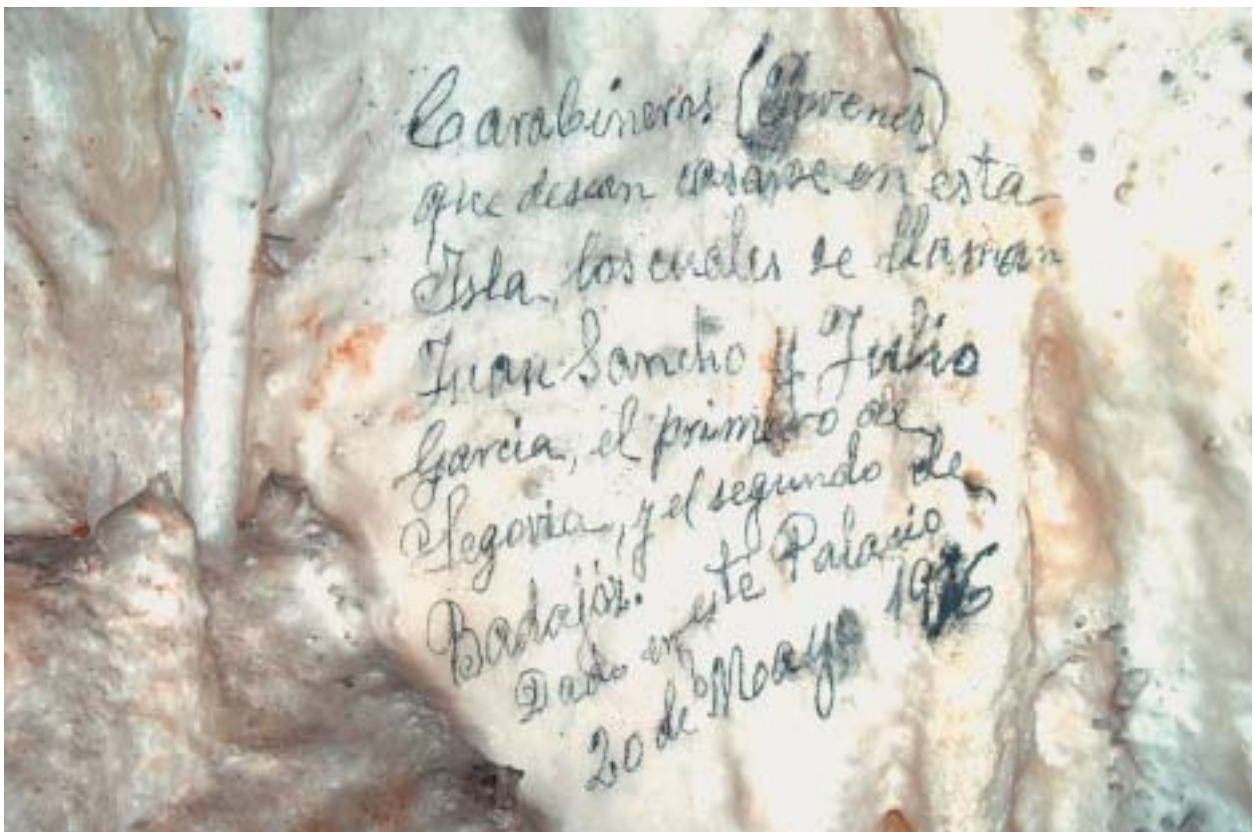 Carabineros (jóvenes)
que desean casarse en esta
Isla, los cuales se llaman
Juan Sancho y Julio
García, el primero de
Segovia, y el segundo de
Badajoz.
Dado en este Palacio
20 de Mayo